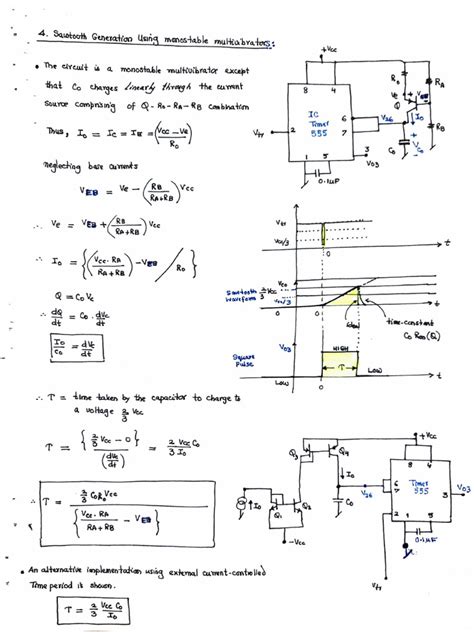 4. Sawtooth Generation Using monostable multivibrators:
• The circuit is a monostable multivibrator except
that Co charges linearly through the current
source comprising of Q-Ro-RA-RB combination
Thus, Io = Ic = IE = (Vcc - Ve / Ro)
neglecting base currents
VEB = Ve - (RB / RA+RB) Vcc
∴ Ve = VEB + (RB / RA+RB) Vcc
∴ Io = {(Vcc·RA / RA+RB) - VEB / Ro}
Q = Co Vc
∴ dQ/dt = Co · dVc/dt
Io/Co = dVc/dt
∴ T = time taken by the capacitor to charge to
a voltage 2/3 Vcc
T = {2/3 Vcc - 0} / (dVc/dt) = 2/3 Vcc Co / Io
∴ T = 2/3 Co Ro Vcc / {Vcc·RA / RA+RB - VEB}
• An alternative implementation using external current-controlled
Time period is shown.
T = 2/3 Vcc Co / Io
+Vcc
8
4
IC
Timer
555
6
7
2
3
1
5
Vtr
V26
V03
0.1μF
Ro
RA
Ve
VEB
Q
Io
RB
Co
Vc
Vtr
Vcc/3
0
t
Sawtooth
Waveform
Vcc
2/3 Vcc
Vcc/3
0
0
t
ideal
time-constant
V03
Square
Pulse
HIGH
T
LOW
LOW
t
+Vcc
Q3
Q4
Io
Io
Q1
Q2
-Vcc
Co
V26
8
4
Timer
555
6
7
2
3
1
5
V03
0.1μF
Vtr